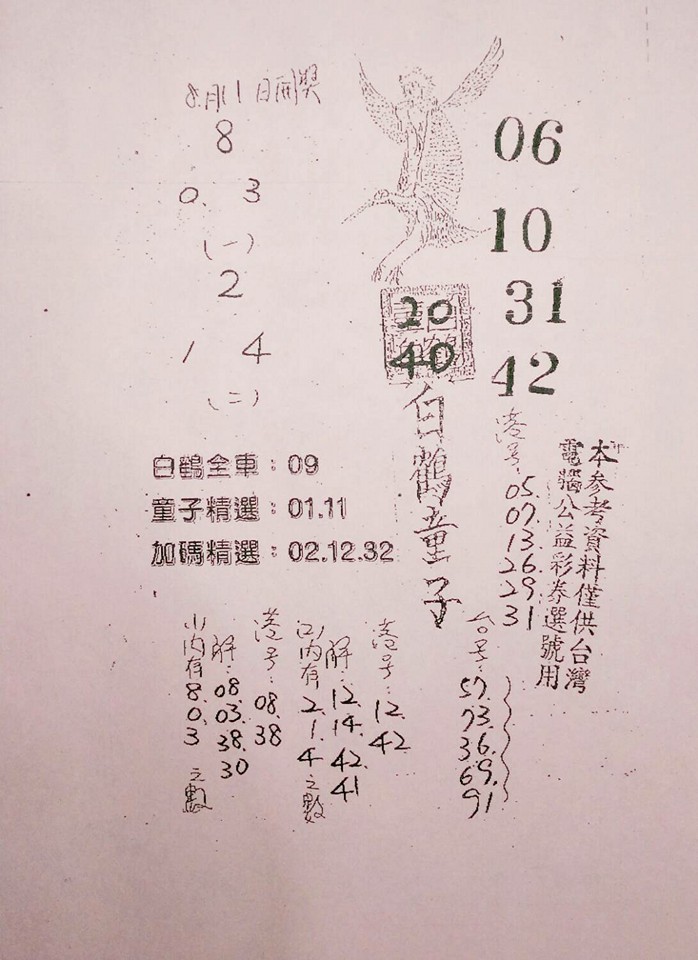 8月11日開獎
8
0. 3
(一)
2
1 4
(二)
06
10
31
42
20
40
白鶴童子
白鶴全車：09
童子精選：01.11
加碼精選：02.12.32
港号：
05.
07.
13.
26.
29.
31
本參考資料僅供台灣
電腦公益彩券選號用
台号：
57.
73.
36.
69.
91
港号：12.
42
解：12.
14.
42.
41
(2)內有2.
1.
4之數
港号：08.
38
解：08.
03.
38.
30
(1)內有8.
0.
3之數